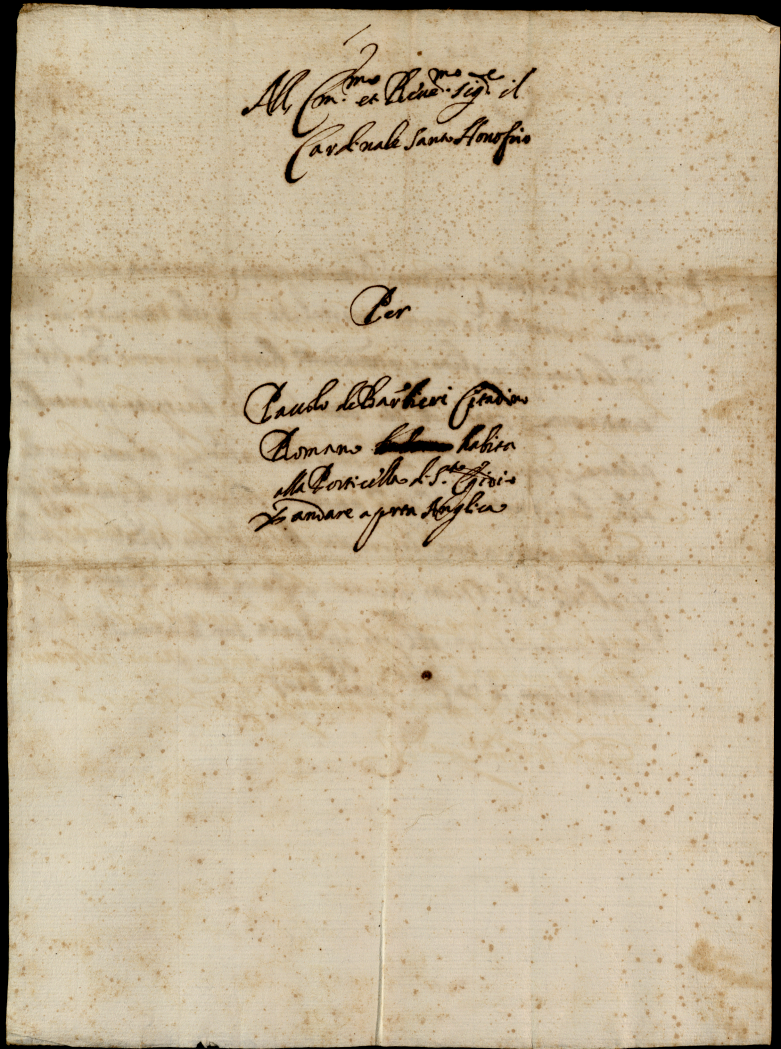 All' Em.mo et Reue.mo Sig.re il
Cardinale Santo Honofrio
Per
Pauolo de Barbieri Citadino
Romano habita
alla Porticella di S.to Egidio
andare a porta Anglica